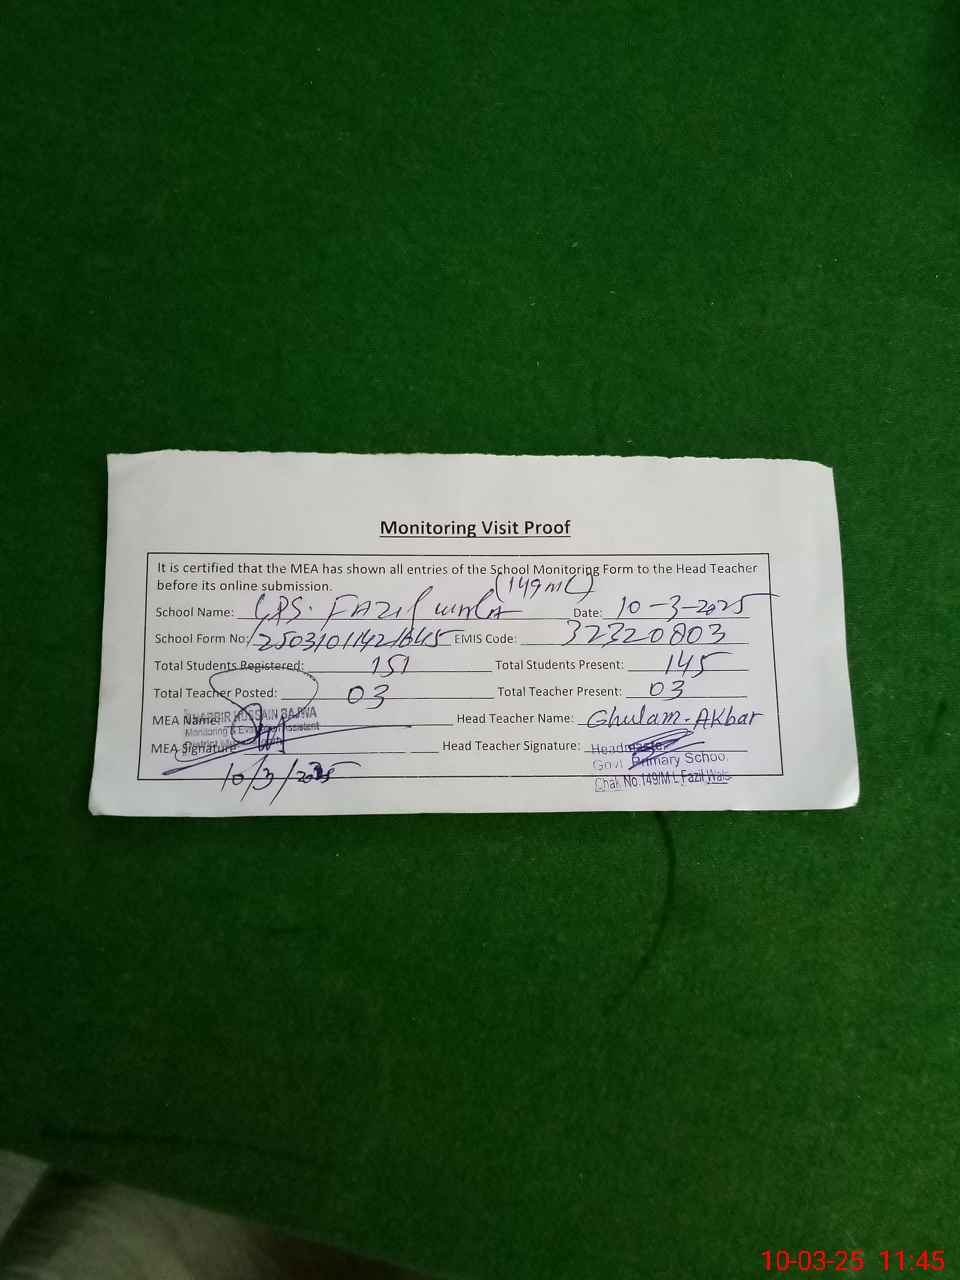 Monitoring Visit Proof
It is certified that the MEA has shown all entries of the School Monitoring Form to the Head Teacher
before its online submission.
(149 ML)
School Name: GPS. FAZil wala Date: 10-3-2025
School Form No: EMIS Code: 32320803
Total Students Registered: 151 Total Students Present: 145
Total Teacher Posted: 03 Total Teacher Present: 03
MEA Name HUSSAIN BAJWA Head Teacher Name: Ghulam. Akbar
Monitoring & Assistant
MEA Signature Head Teacher Signature: Headmaster
Govt Primary School
Chak No.149/M L Fazil Wala
10/3/2025
10-03-25 11:45